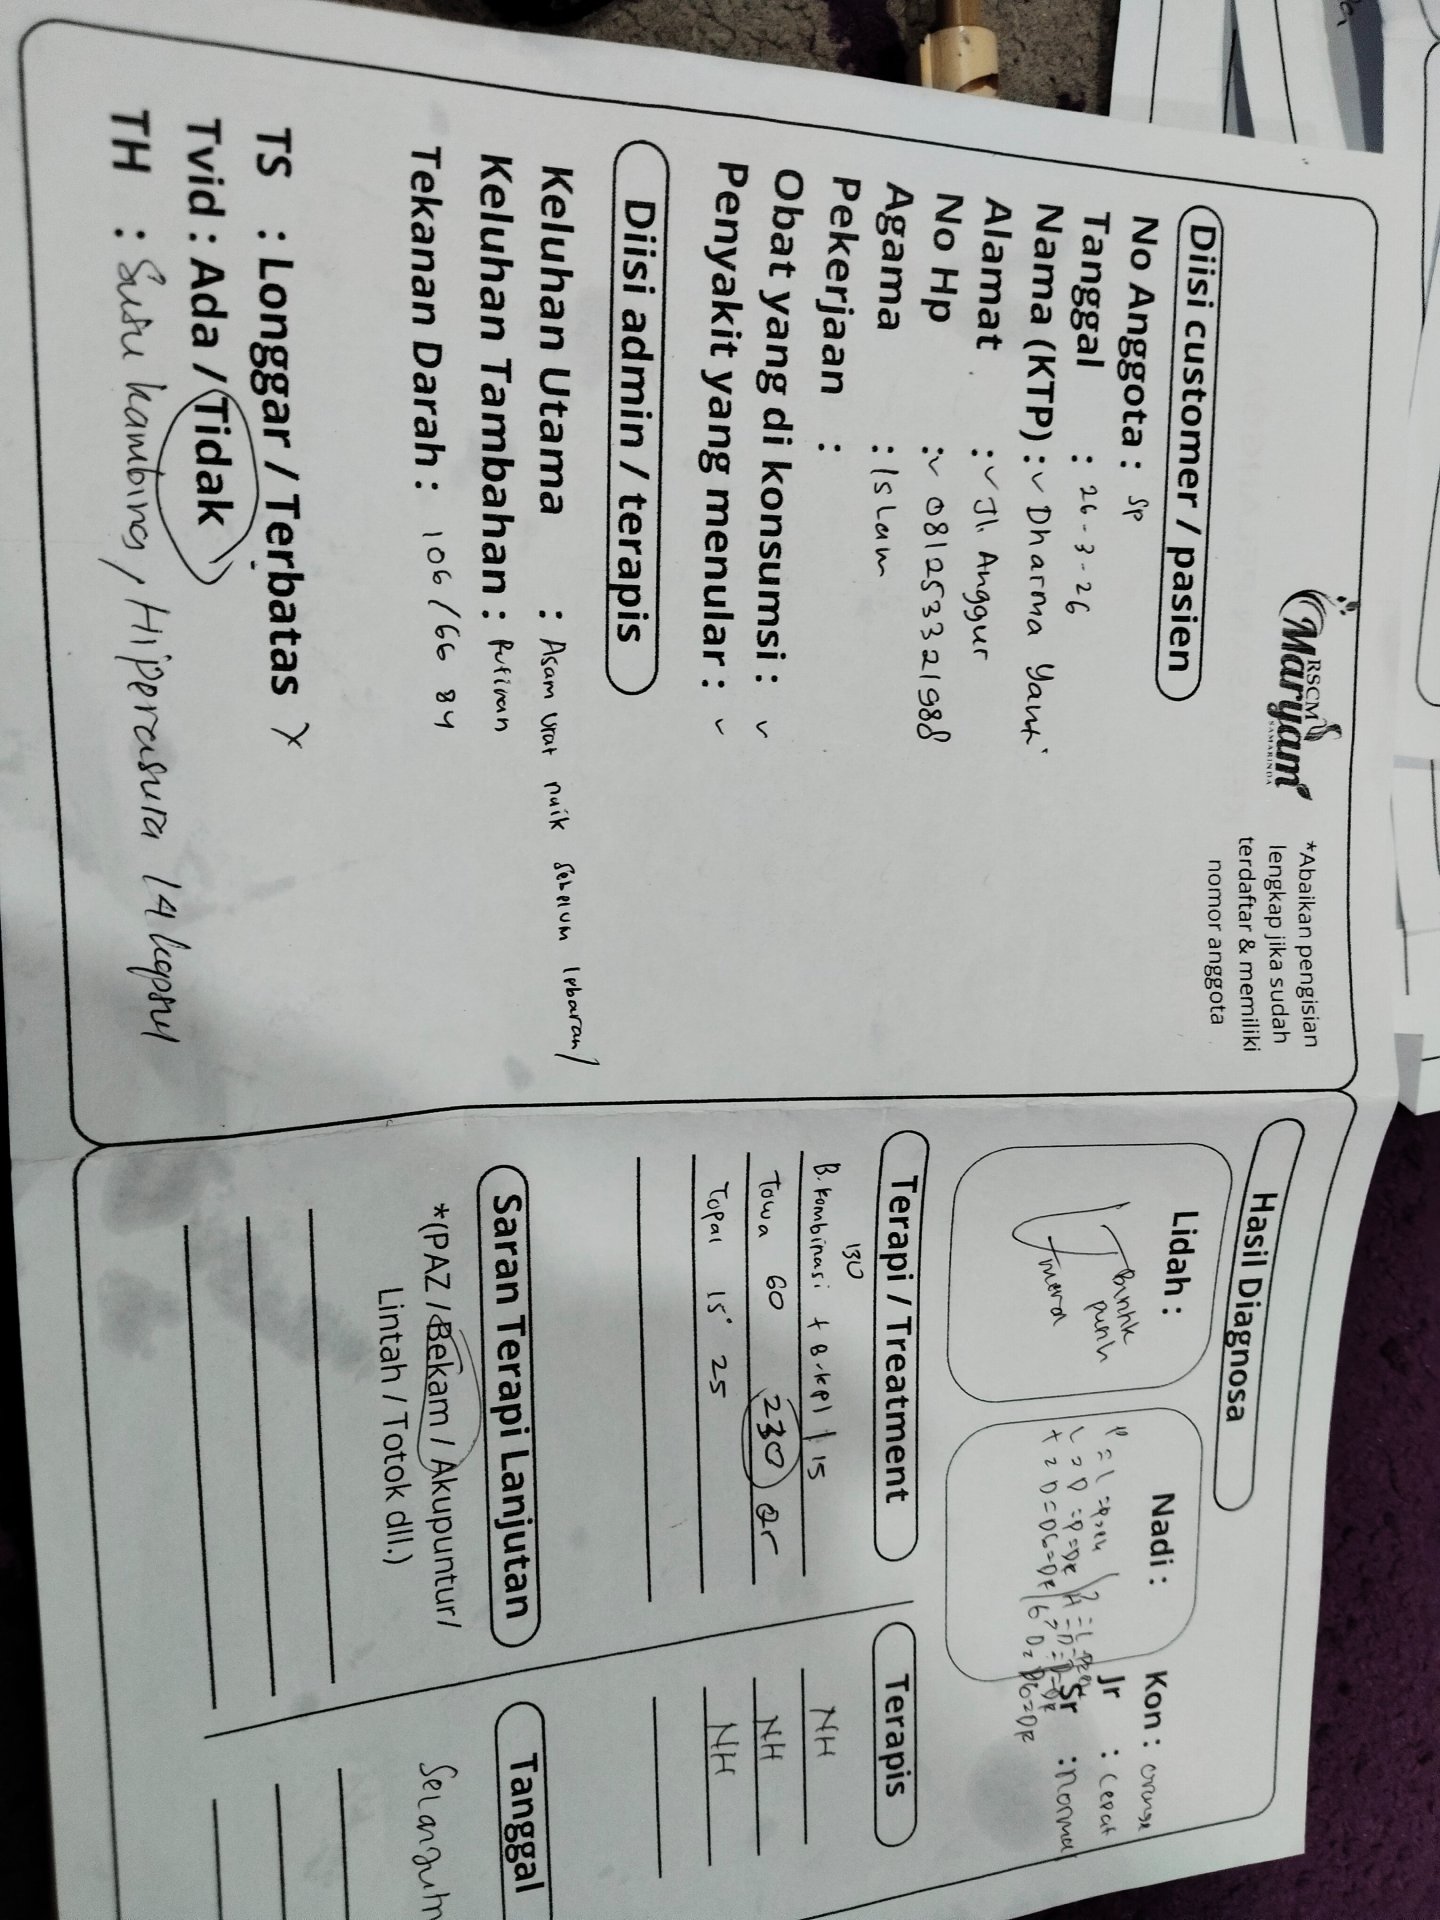 RSCM
Maryam
SAMARINDA
*Abaikan pengisian
lengkap jika sudah
terdaftar & memiliki
nomor anggota
Diisi customer / pasien
No Anggota : SP
Tanggal : 26-3-26
Nama (KTP) : Dharma Yanti
Alamat : Jl. Anggur
No Hp : 081253321988
Agama : Islam
Pekerjaan :
Obat yang di konsumsi :
Penyakit yang menular :
Diisi admin / terapis
Keluhan Utama : Asam urat naik sebelum lebaran/
Keluhan Tambahan :
Tekanan Darah : 106/66 84
TS : Longgar / Terbatas
Tvid : Ada / Tidak
TH : Susu kambing, Hiperasura 14 kapsul
Hasil Diagnosa
Lidah :
Nadi :
Kon : orange
Jr : cepat
Sr : normal
Terapi / Treatment
130
B. kombinasi + B. kpl / 15
Towa 60 230 Qr
Topai 15' 25
Terapis
NH
NH
NH
Saran Terapi Lanjutan
*(PAZ / Bekam / Akupuntur/
Lintah / Totok dll.)
Tanggal